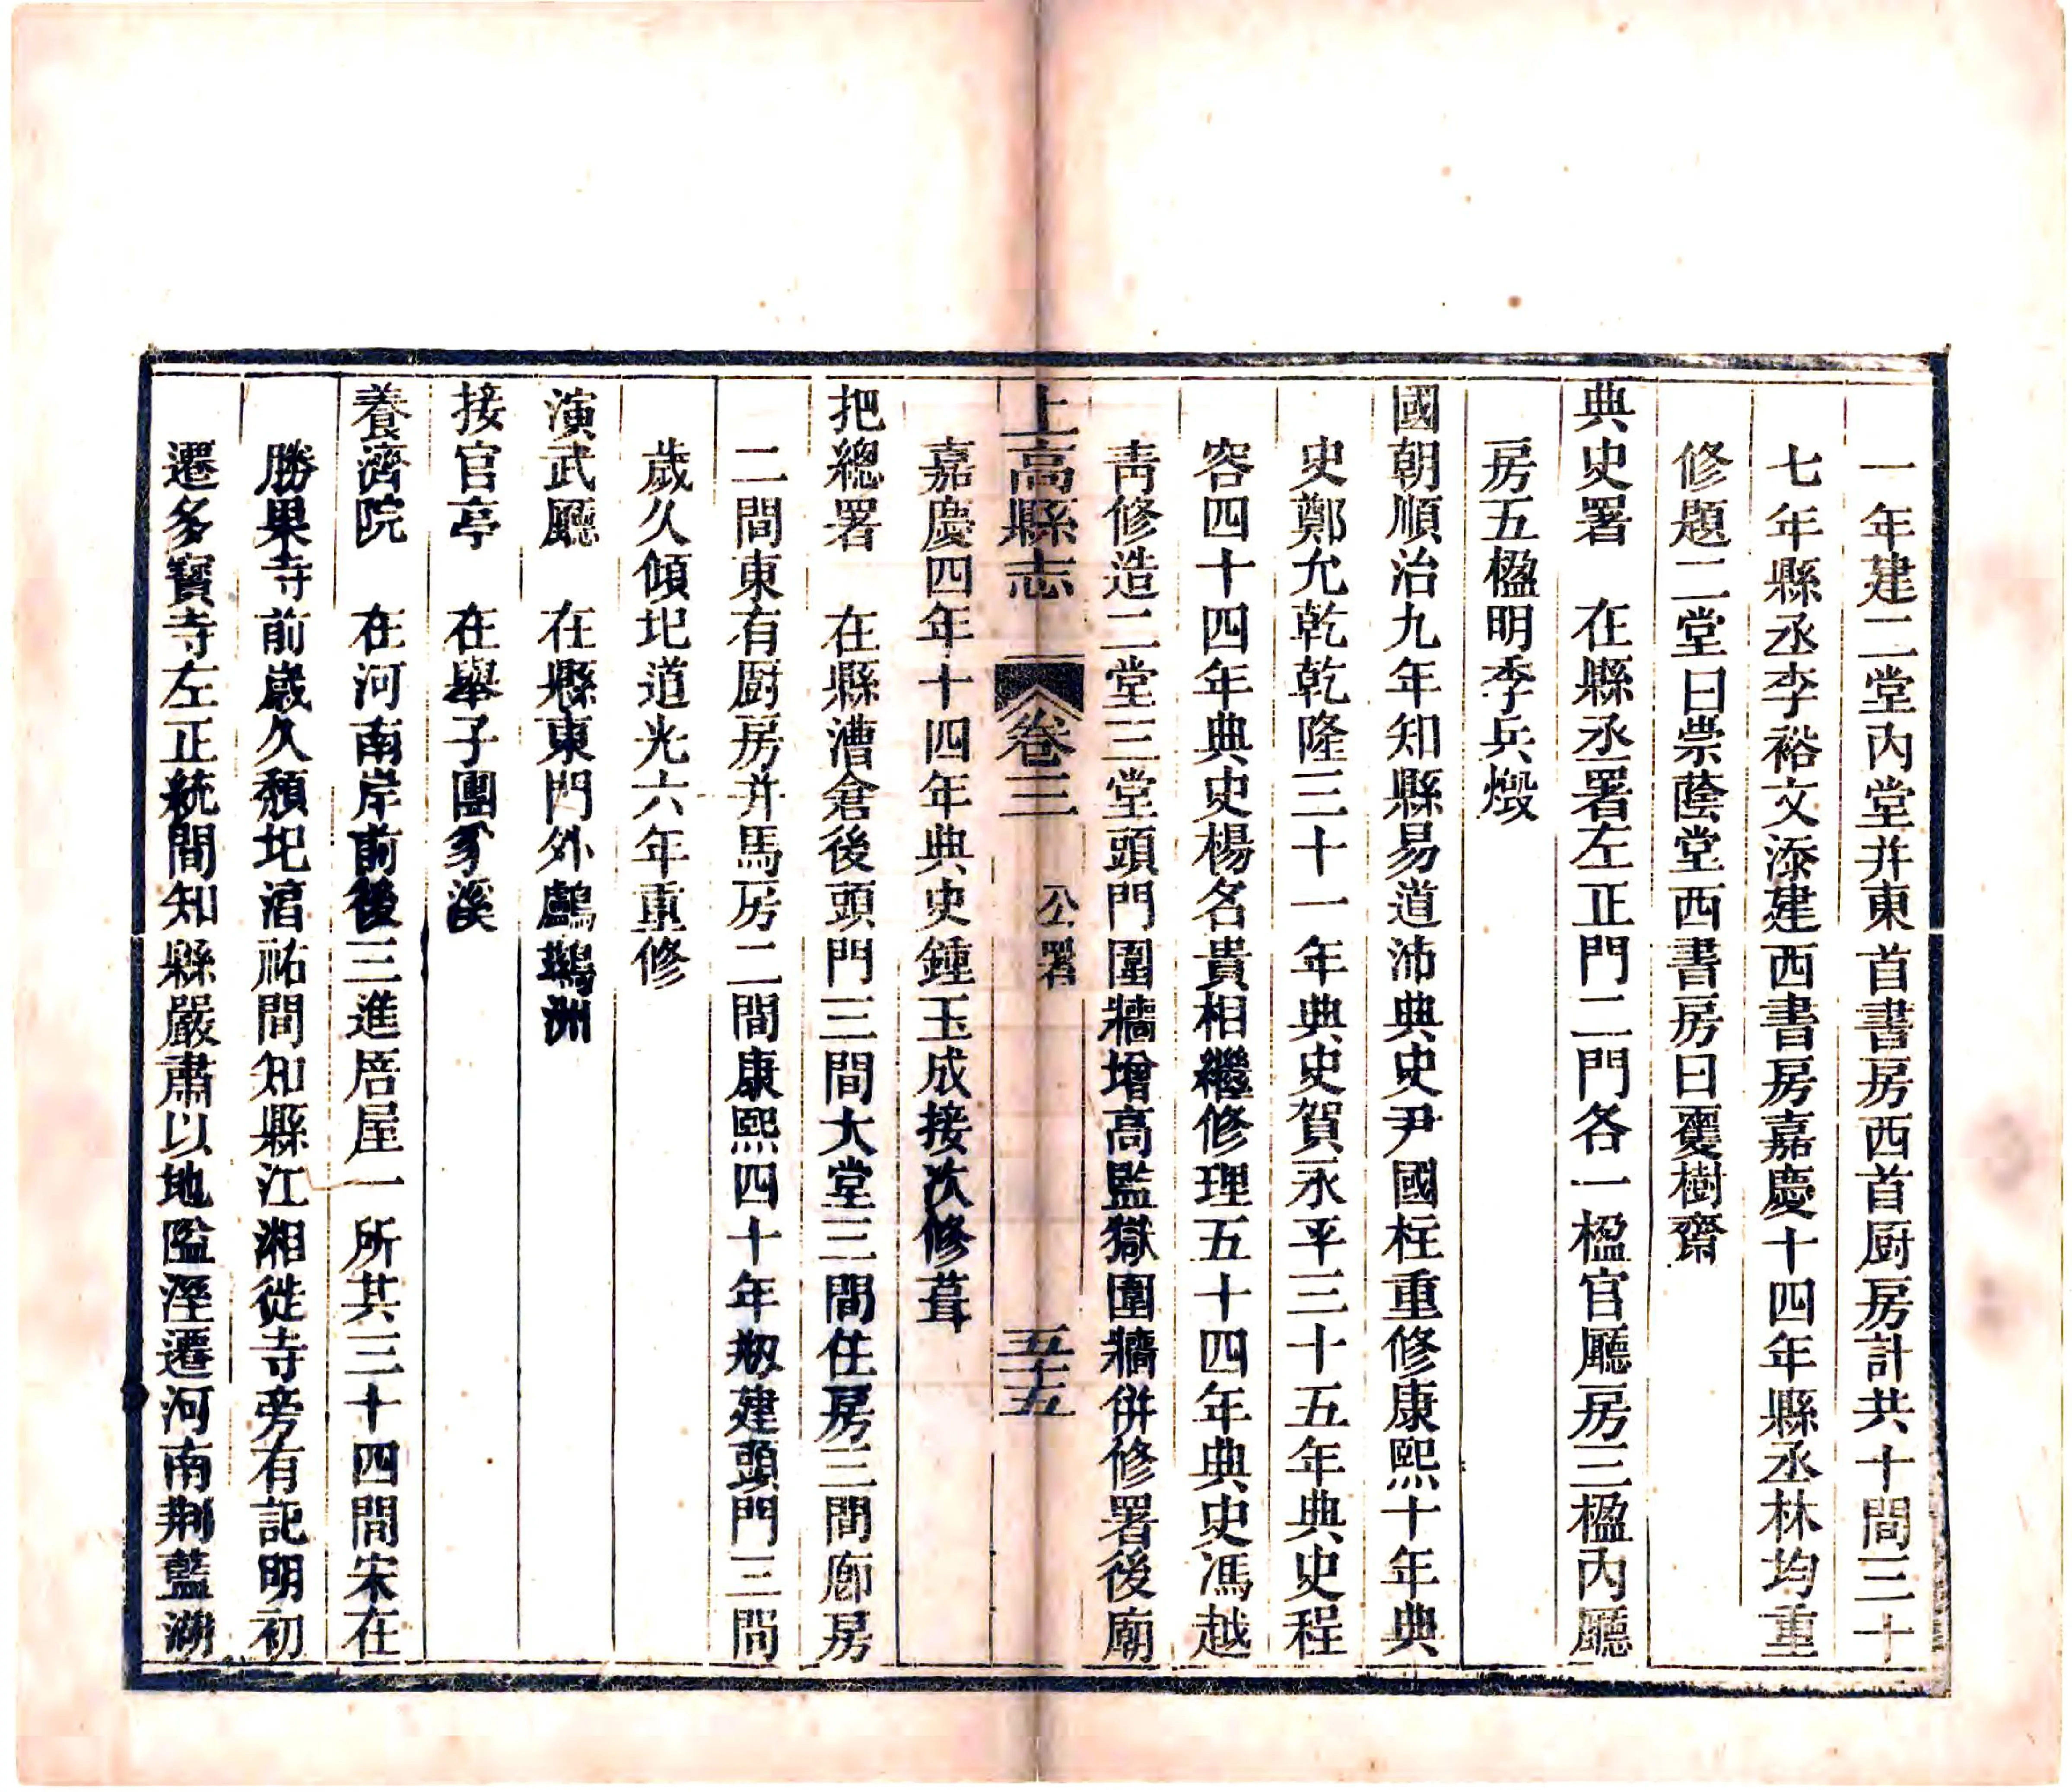 一年建二堂內堂并東首書房西首厨房計共十間三十
七年縣丞李裕文添建西書房嘉慶十四年縣丞林均重
修題二堂曰崇蔭堂西書房曰䕫樹齋
典史署　在縣丞署左正門二門各一楹官廳房三楹內廳
房五楹明季兵燬
國朝順治九年知縣易道沛典史尹國柱重修康熙十年典
史鄭允乾乾隆三十一年典史賀永平三十五年典史程
容四十四年典史楊名貴相繼修理五十四年典史馮越
靑修造二堂三堂頭門圍牆增高監獄圍牆併修署後廟
上高縣志　卷三　公署　五十五
嘉慶四年十四年典史鍾玉成接次修葺
把總署　在縣漕倉後頭門三間大堂三間住房三間廊房
二間東有厨房并馬房二間康熙四十年剏建頭門三間
歲久傾圮道光六年重修
演武廳　在縣東門外鸕鷀洲
接官亭　在舉子團豸溪
養濟院　在河南岸前後三進居屋一所其三十四間宋在
勝果寺前歲久頹圮淳祐間知縣江湘徙寺旁有記明初
遷多寶寺左正統間知縣嚴肅以地隘溼遷河南荆藍湖